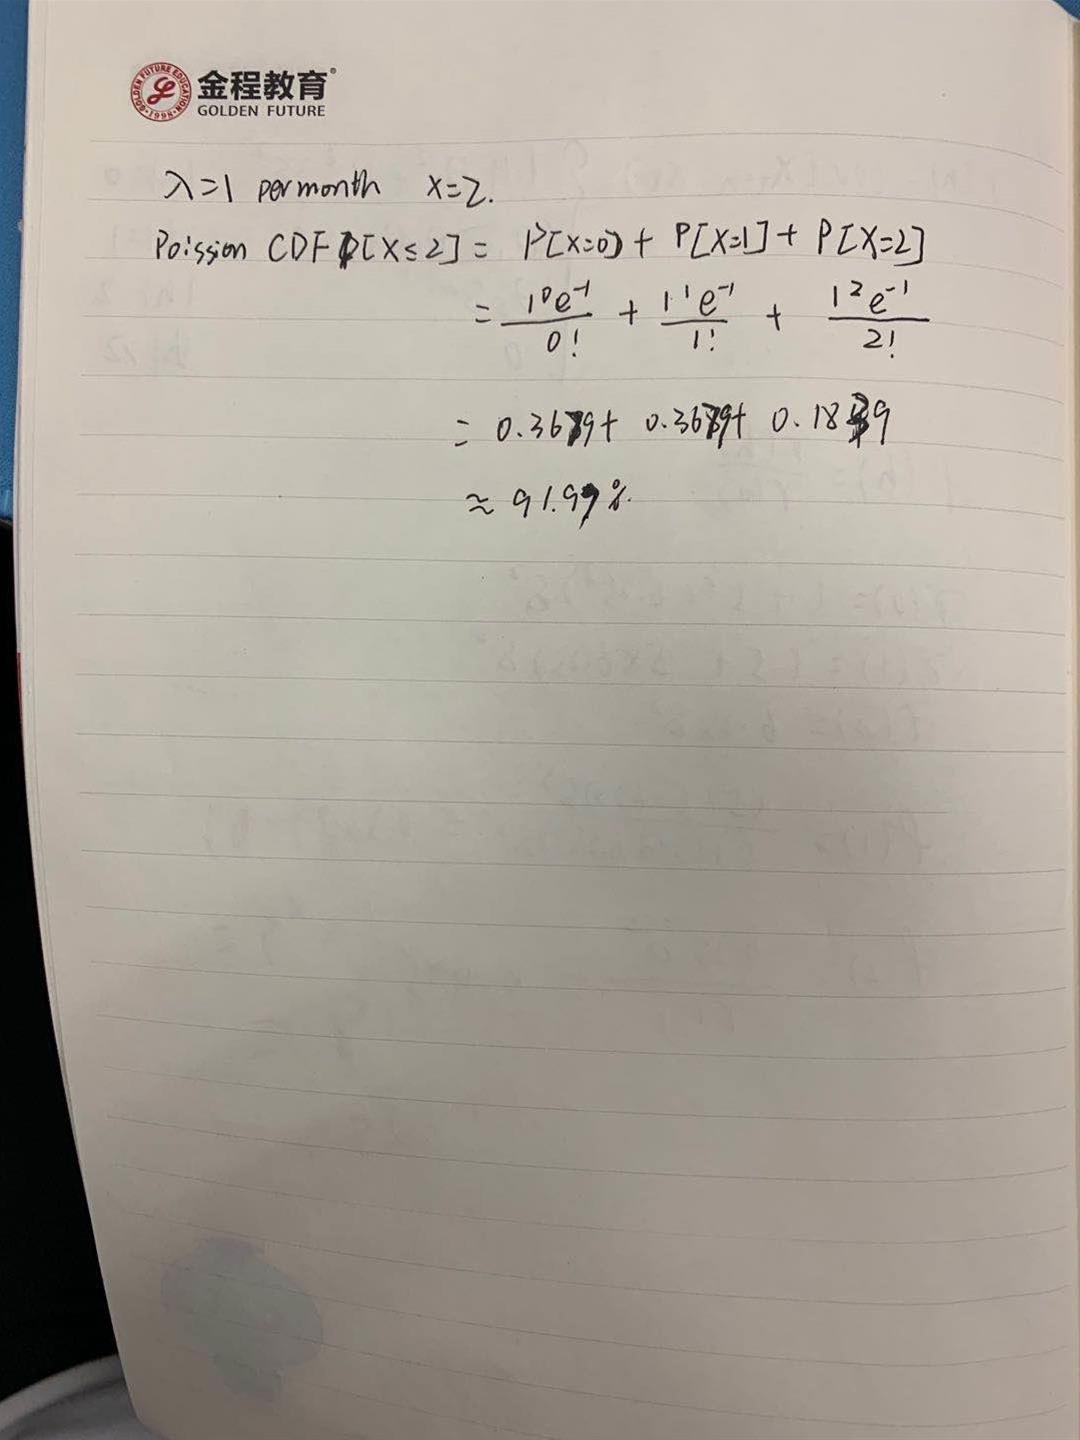 金程教育
GOLDEN FUTURE
GOLDEN FUTURE EDUCATION
1998
λ=1 per month x=2.
Poission CDF P[X≤2] = P[X=0] + P[X=1] + P[X=2]
= 1⁰e⁻¹/0! + 1¹e⁻¹/1! + 1²e⁻¹/2!
= 0.3679+ 0.3679+ 0.1839
≈ 91.97%.